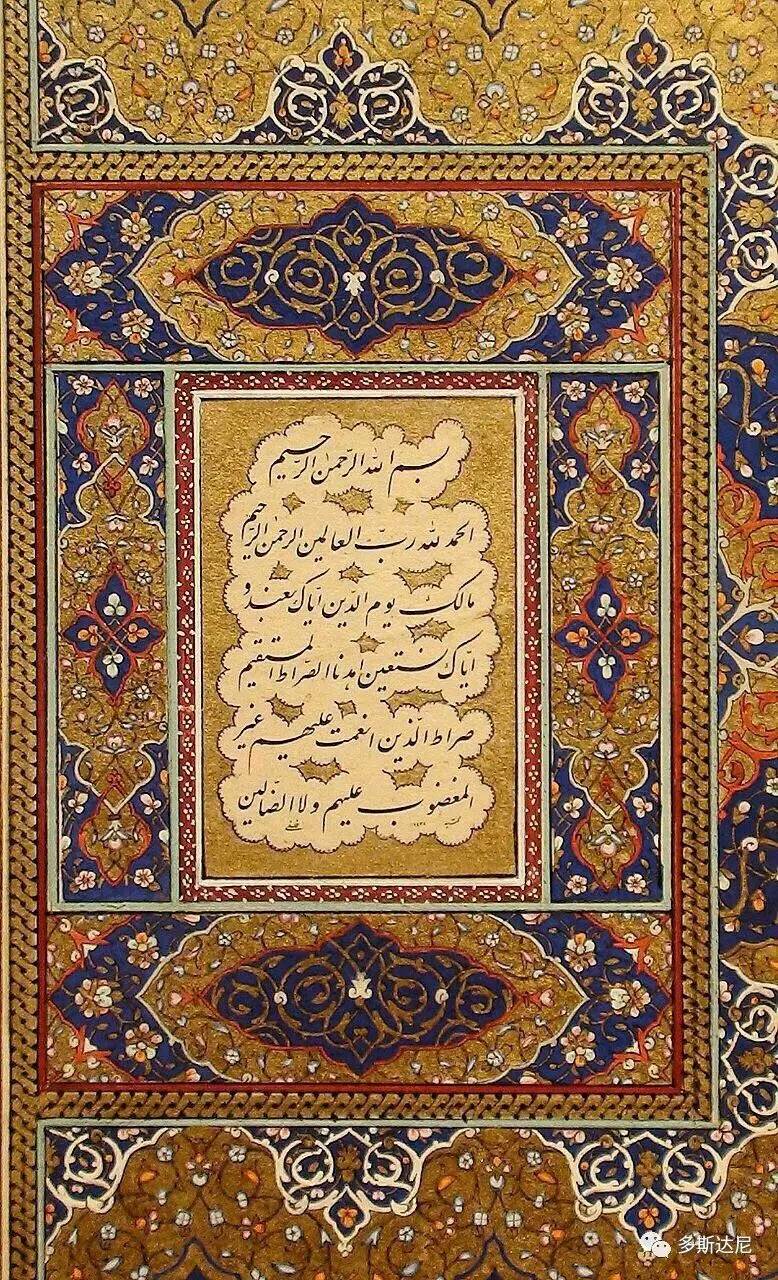 بسم الله الرحمن الرحيم
الحمد لله ربّ العالمين الرحمن الرحيم
مالك يوم الدّين ايّاك نعبد و
ايّاك نستعين اهدنا الصّراط المستقيم
صراط الّذين انعمت عليهم غير
المغضوب عليهم ولا الضّالّين
多斯达尼